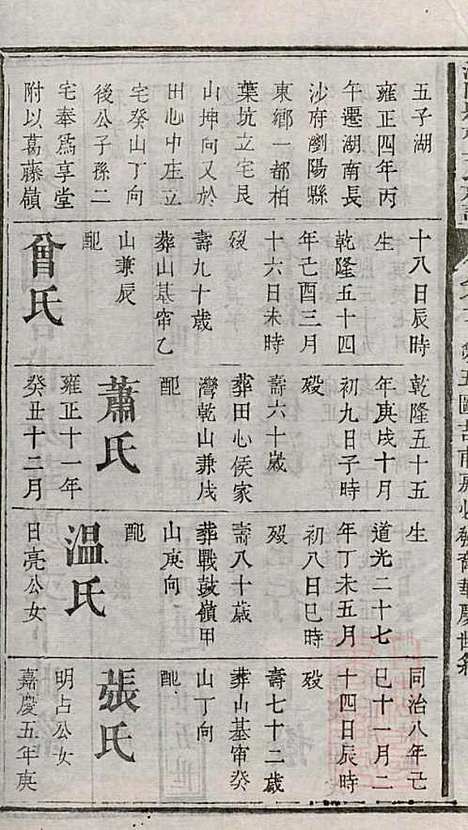 五子湖
雍正四年丙
午遷湖南長
沙府瀏陽縣
東鄉一都柏
葉坑立宅艮
山坤向又於
田心中庄立
宅癸山丁向
後公子孫二
宅奉爲享堂
附以葛藤嶺
十八日辰時
生
乾隆五十四
年己酉三月
十六日未時
歿
壽九十歲
葬山基窜乙
山兼辰
配
曾氏
乾隆五十五
年庚戌十月
初九日子時
歿
壽六十歲
葬田心侯家
灣乾山兼戌
配
蕭氏
雍正十一年
癸丑十二月
生
道光二十七
年丁未五月
初八日巳時
歿
壽八十歲
葬戰鼓嶺甲
山庚向
配
温氏
日亮公女
同治八年己
巳十一月二
十四日辰時
歿
壽七十二歲
葬山基窜癸
山丁向
配
張氏
明占公女
嘉慶五年庚